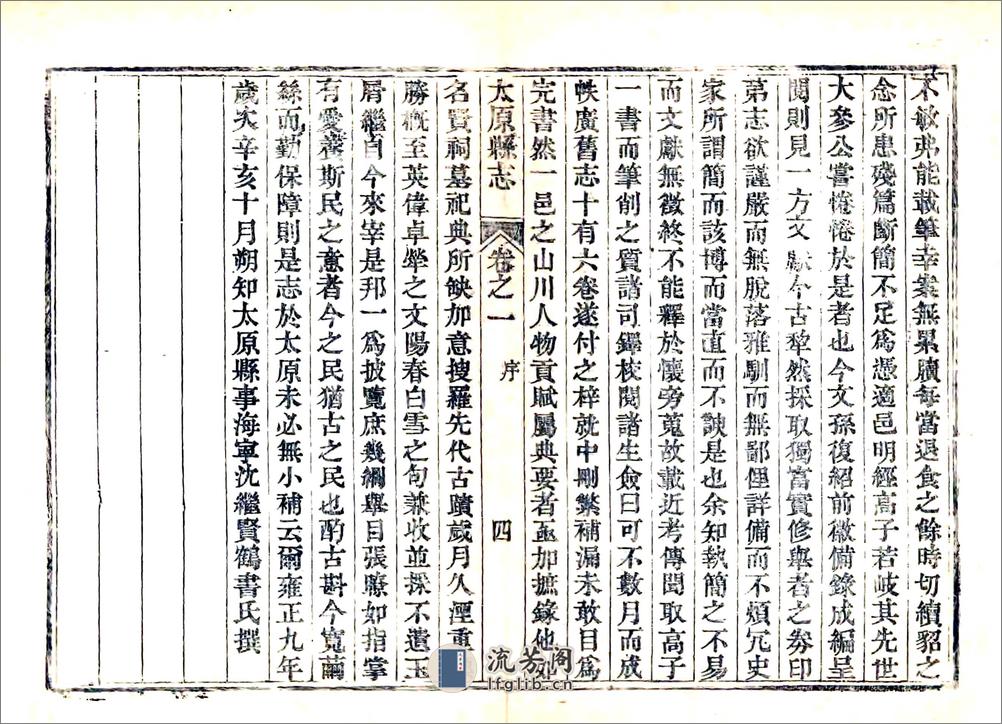 不敏弗能載筆幸案無累牘每當退食之餘時切續貂之
念所患殘篇斷簡不足爲憑適邑明經高子若岐其先世
大參公嘗惓惓於是者也今文孫復紹前徽備錄成編呈
閱則見一方文獻今古犂然採取獨富實修舉者之劵印
第志欲謹嚴而無脫落雅馴而無鄙俚詳備而不煩冗史
家所謂簡而該博而當直而不諛是也余知執簡之不易
而文獻無徵終不能釋於懷旁蒐故載近考傳聞取高子
一書而筆削之質諸司鐸校閱諸生僉曰可不數月而成
帙廣舊志十有六卷遂付之梓就中刪繁補漏未敢目爲
完書然一邑之山川人物貢賦屬典要者亟加摭錄他如
太原縣志 卷之一 序 四
名賢祠墓祀典所缺加意搜羅先代古蹟歲月久湮重
勝概至英偉卓犖之文陽春白雪之句兼收並採不遺玉
屑繼自今來宰是邦一爲披覽庶幾綱舉目張瞭如指掌
有愛養斯民之意者今之民猶古之民也酌古斟今寬繭
絲而勤保障則是志於太原未必無小補云爾雍正九年
歲次辛亥十月朔知太原縣事海寧沈繼賢鶴書氏撰
流芳閣
lfglib.cn